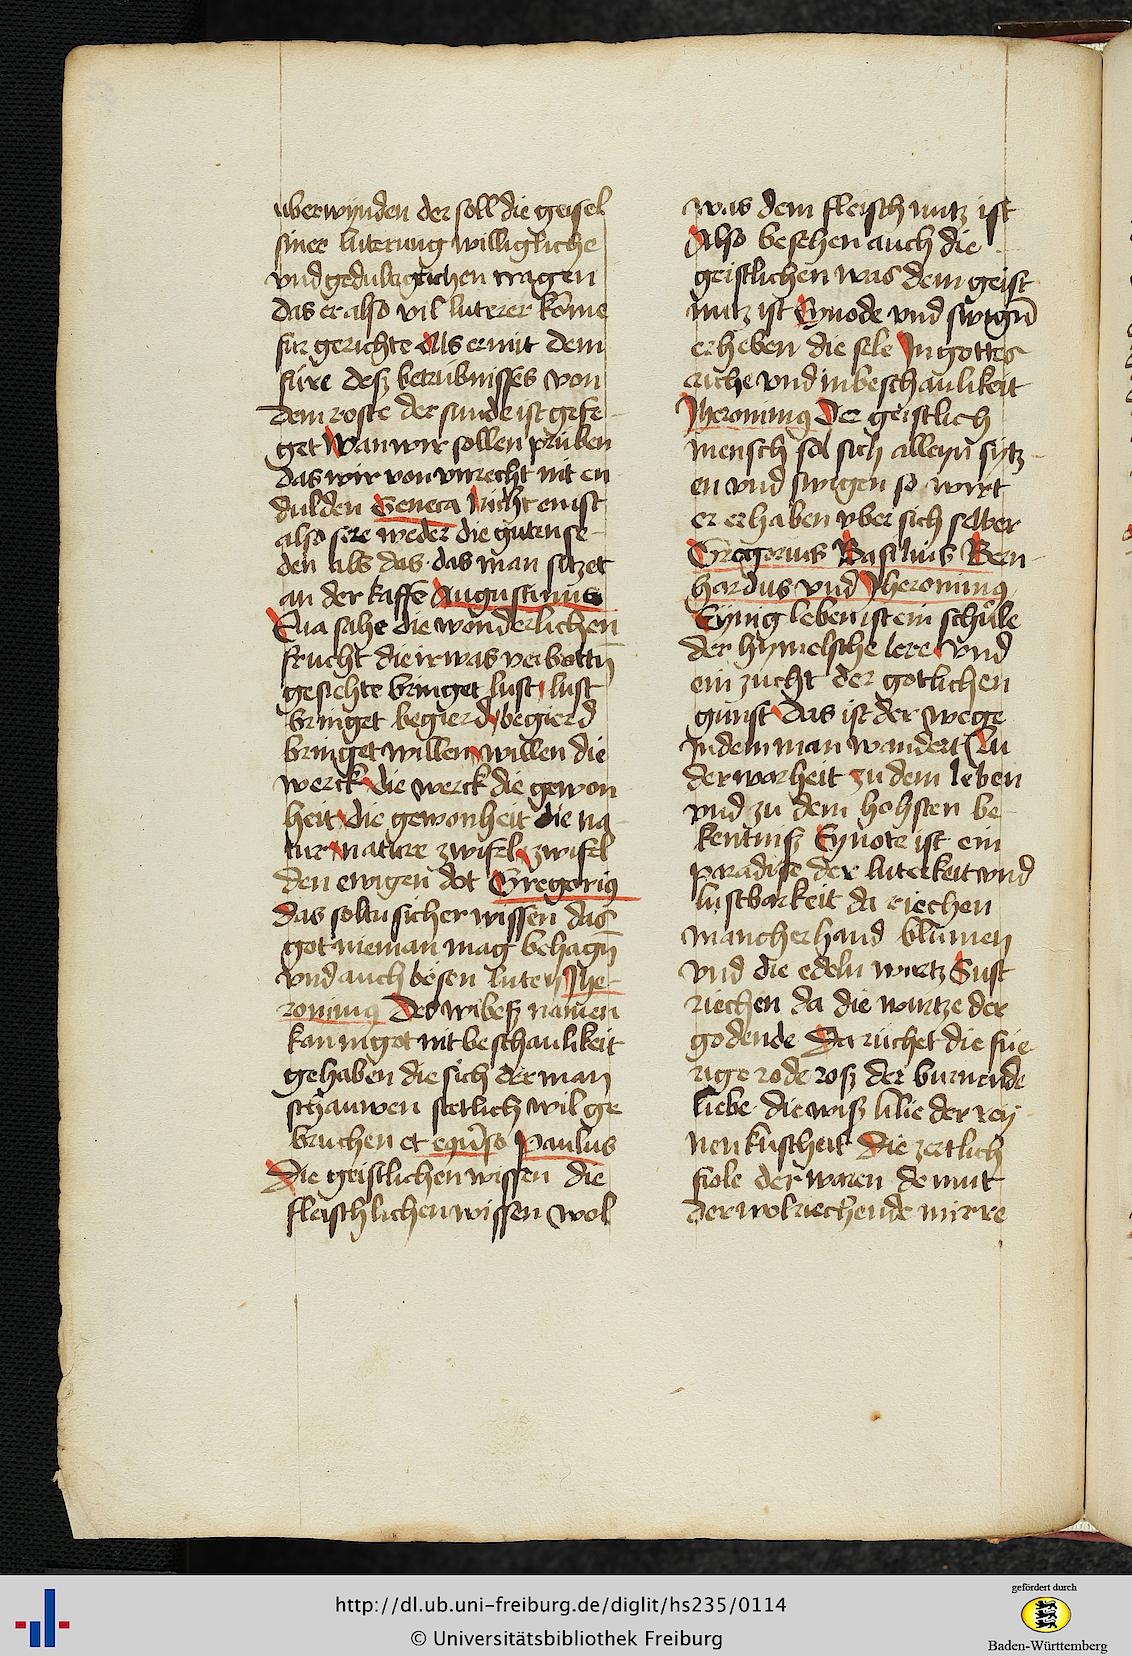 uberwynden der soll die geisel
siner luterung willigliche
vnd gedulteglichen tragen
das er also vil luterer kome
fur gerichte Als er mit dem
fure desz betrubnisses von
dem roste der sunde ist gefe
get Wan wir sollen pruben
das wir von vnrecht nit en
dulden Seneca Nicht en ist
also sere weder die guten se
den als das das man sitzet
an der kaffe Augustinus
Eua sahe die wonderlichen
frucht die ir was verbottn
gesichte bringet lust lust
bringet begierd begierd
bringet willen willen die
werck die werck die gewon
heit die gewonheit die na
tur nature zwifel zwifel
den ewigen dot Gregorius
Das soltu sicher wissen das
got nieman mag behagn
vnd auch bosen luten Jhe
ronimus Des wibesz namen
kan in got nit beschaulikeit
gehaben die sich der man
schauwen stetlich wil ge
bruchen et Paulus
Die geistlichen wissen die
fleischlichen wissen wol
was dem fleisch nutz ist
Also besehen auch die
geistlichen was dem geist
nutz ist Eynode vnd swign
erheben die sele In gottes
riche vnd in beschaulikeit
Jheronimus Der geistlich
mensch sol sich alleyn sytz
en vnd swigen so wirt
er erhaben vber sich selber
Gregorius Basilius Bern
hardus vnd Jheronimus
Eynig leben ist ein schule
der hymelsche lere vnd
ein zucht der gotlichen
gunst das ist der wege
Indem man wandert Zu
der warheit zu dem leben
vnd zu dem hohsten be
kentnisz Eynote ist ein
paradise der luterkeit vnd
lustbarkeit da riechen
mancherhand blumen
vnd die edeln wurtz Sust
riechen da die wurtze der
godende Da ruchet die fue
rige rode rosz der burnende
liebe die wisz lilie der rey
nen kuscheit Die zertlich
fiole der waren demut
der wolriechende mirre
http://dl.ub.uni-freiburg.de/diglit/hs235/0114
© Universitätsbibliothek Freiburg
gefördert durch
Baden-Württemberg